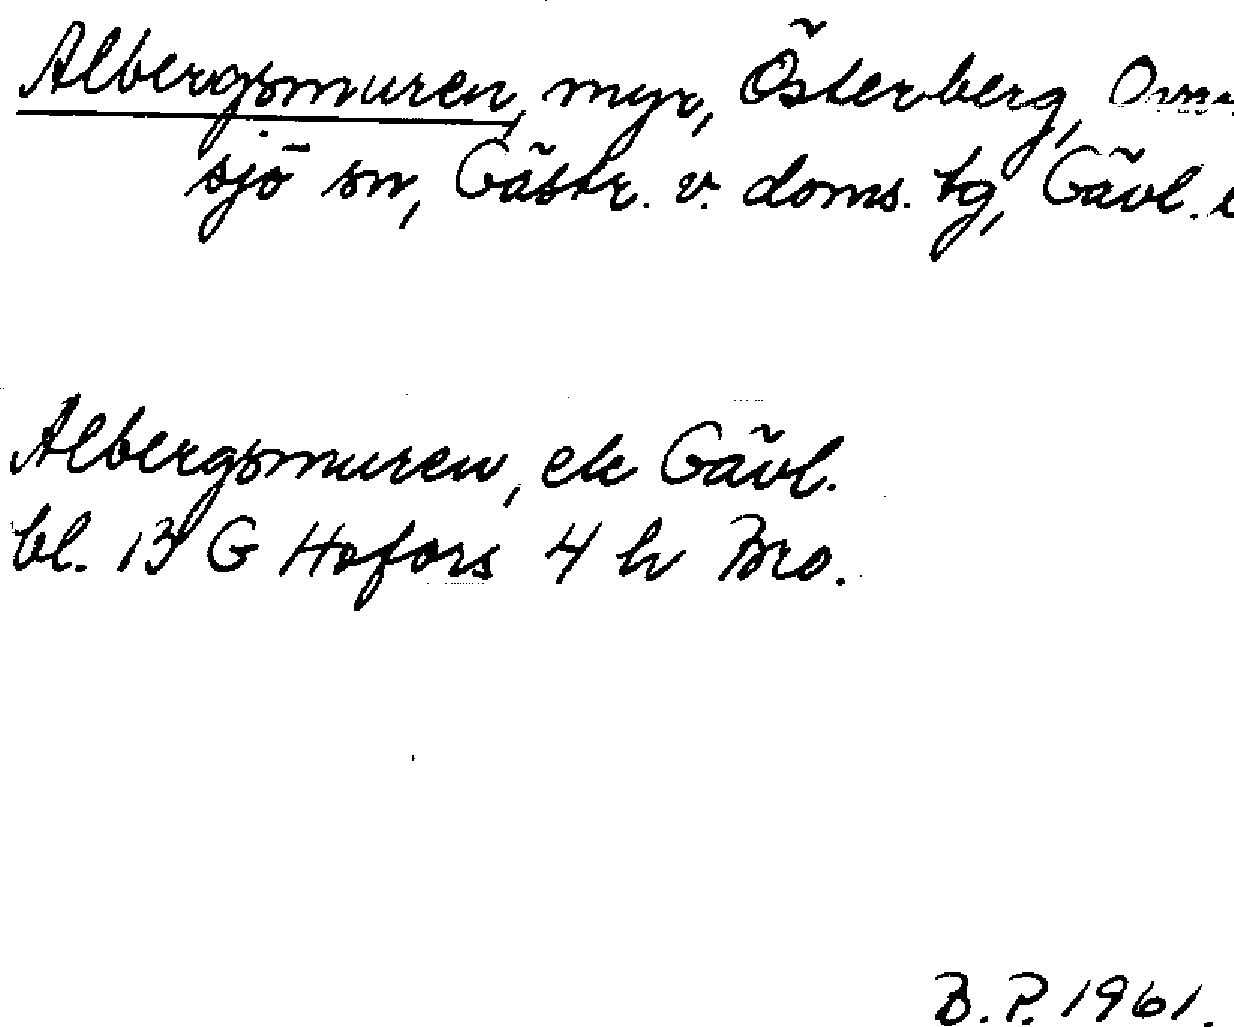 Albergsmuren, myr, Österberg, Om-
sjö sn, Gästr. v. doms. tg, Gävl. l
Albergsmuren, ek Gävl.
bl. 13 G Hofors 4 h Mo.
B. P. 1961.